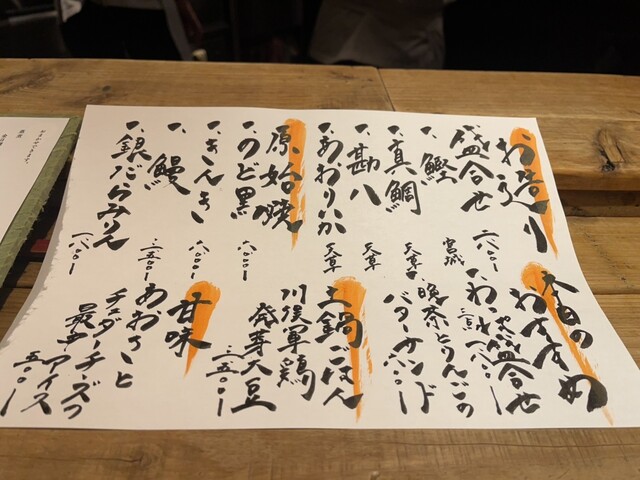 お造り
盛合せ 二八〇〇一
一、鰹 宮城
一、真鯛 天草
一、勘八 天草
一、あおりいか 天草
原始焼
一、のど黒 八〇〇一
一、きんき 八〇〇一
一、鰻 三五〇〇一
一、銀だらみりん 一八〇〇一
本日のおすすめ
盛合せ
三点 一八〇〇一
晩茶とりんごの
バターサンド
土鍋ごはん
川俣軍鶏
発芽大豆
三五〇〇一
甘味
あおさと
チェダーチーズの
最中アイス
五〇〇一